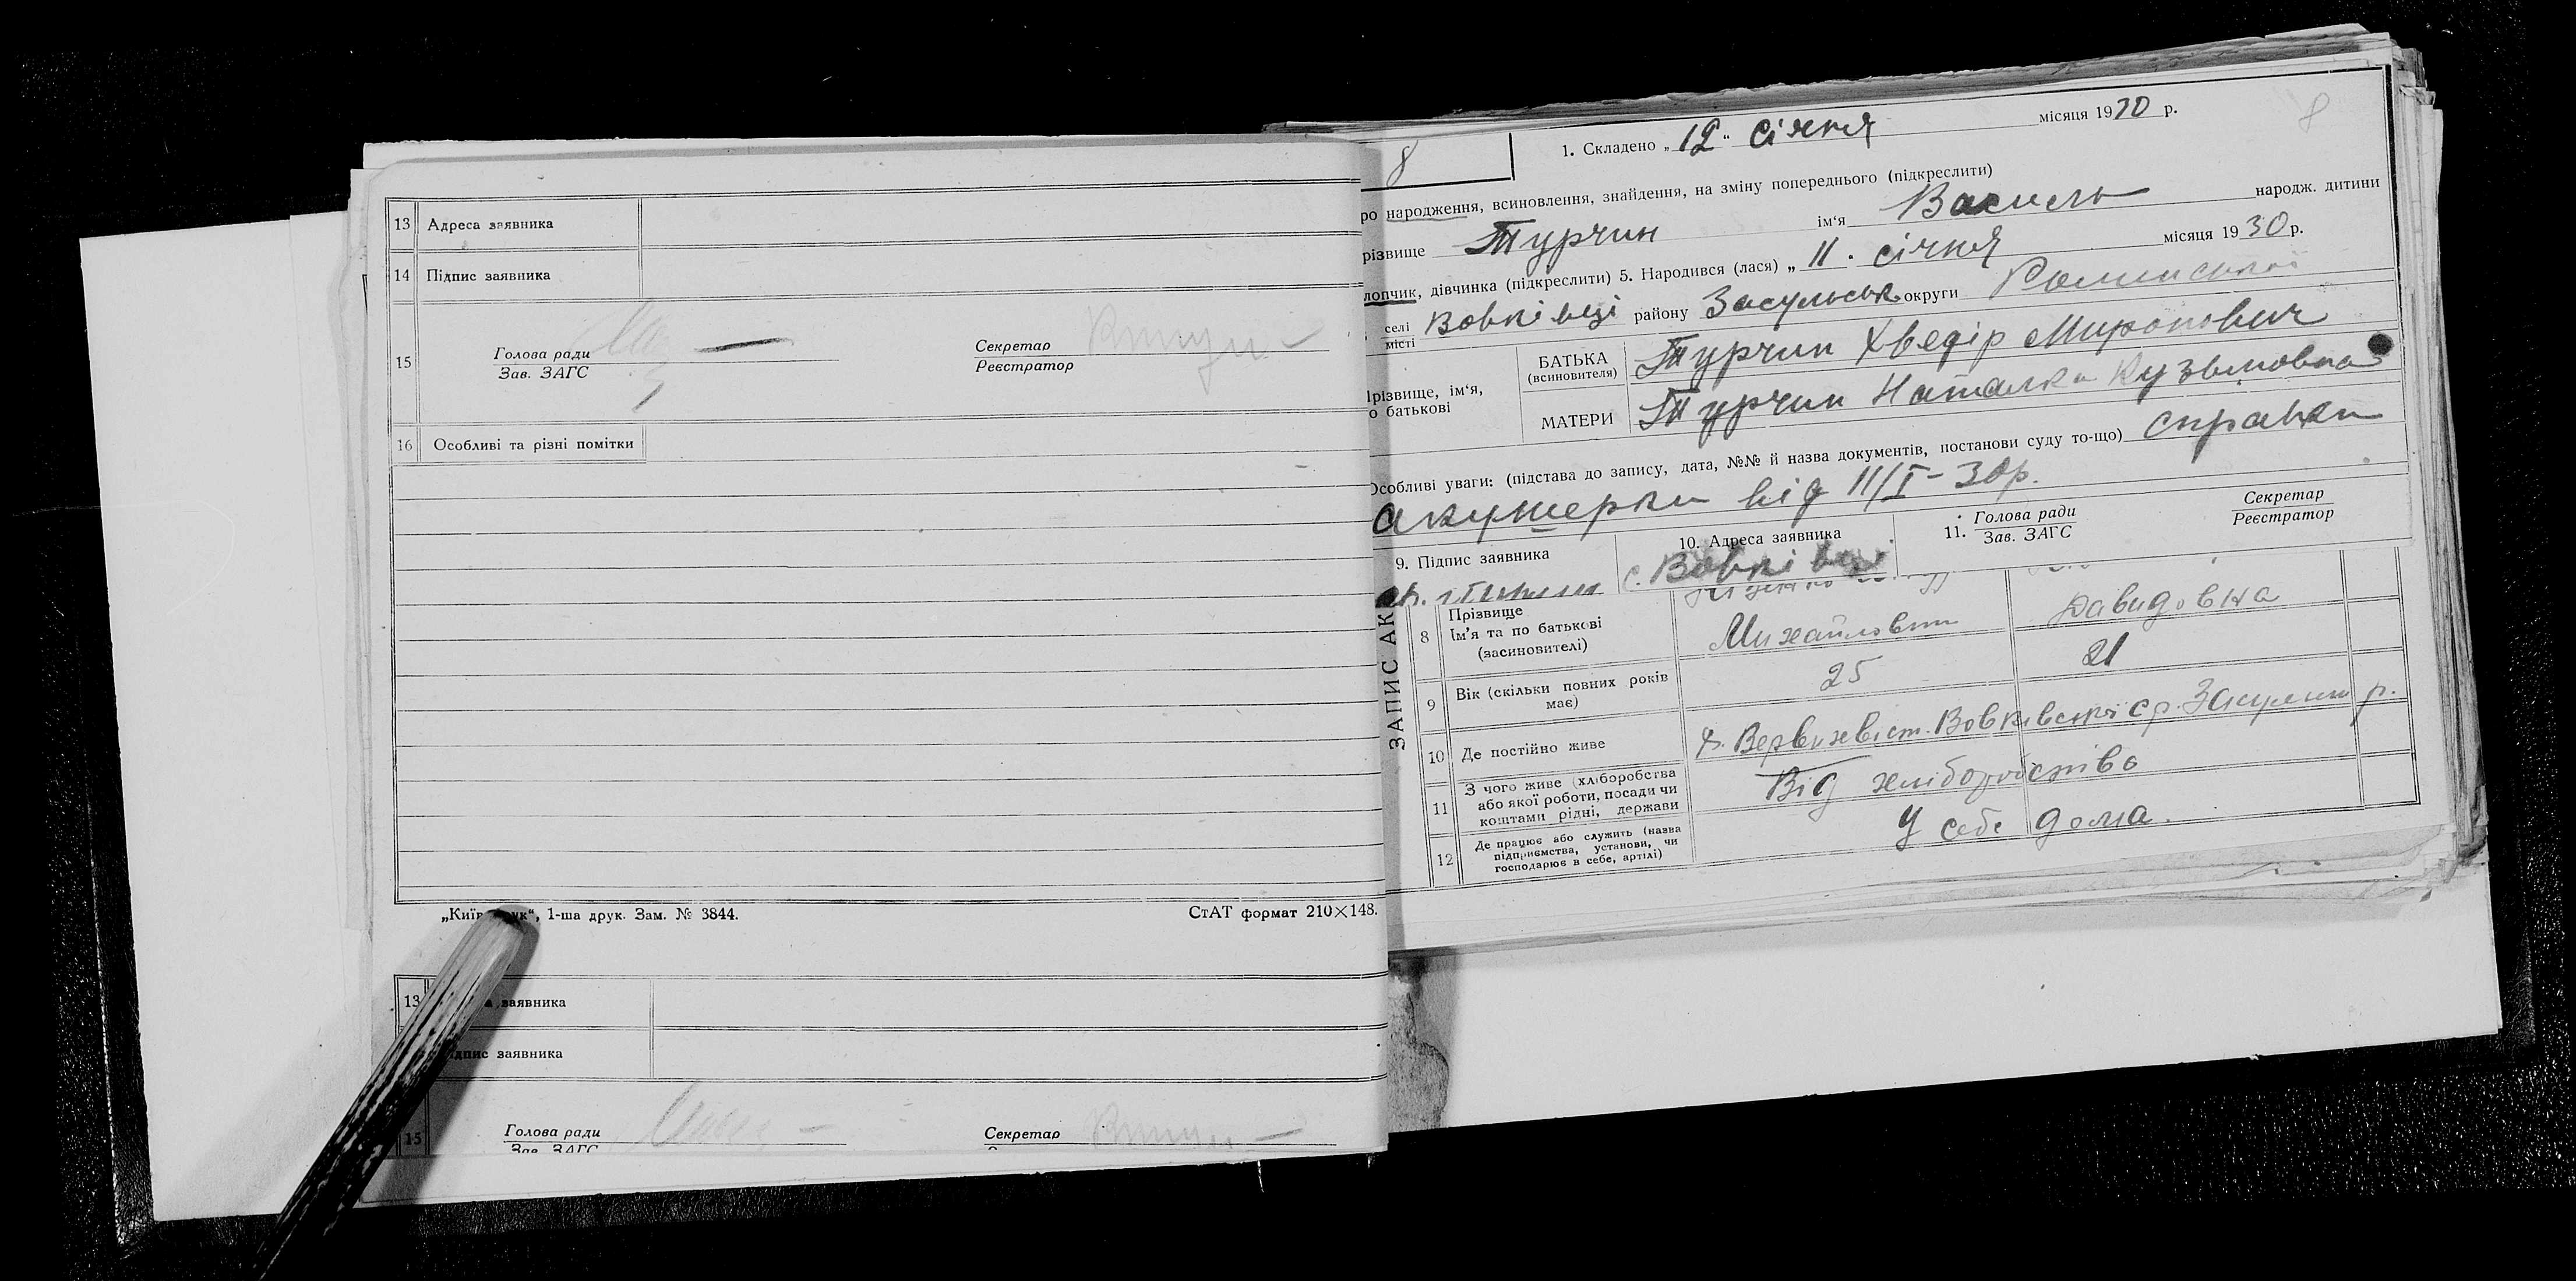 13 Адреса заявника
14 Підпис заявника
15 Голова ради Секретар
Зав. ЗАГС Реєстратор
16 Особливі та різні помітки
1-ша друк. Зам. № 3844. СтАТ формат 210×148.
13 заявника
заявника
15 Голова ради Секретар
Зав. ЗАГС
8
8
1. Складено „12“ січня місяця 1930 р.
ро народження, всиновлення, знайдення, на зміну попереднього (підкреслити)
різвище Турчин ім'я Василь народж. дитини
лопчик, дівчинка (підкреслити) 5. Народився (лася) „11. січня місяця 1930 р.
селі Вовківці району Засульськ. округи Роменської
місті
різвище, ім'я,
о батькові
БАТЬКА
(всиновителя) Турчин Хведір Миронович
МАТЕРИ Турчин Наталка Кузьмовна
Особливі уваги: (підстава до запису, дата, №№ й назва документів, постанови суду то-що) справки
акушерки від 11/I-30р.
9. Підпис заявника 10. Адреса заявника 11. Голова ради Секретар
Зав. ЗАГС Реєстратор
с. Вовківці
ЗАПИС АК
8 Прізвище
Ім'я та по батькові
(засиновителі) Михайлович Давидовна
9 Вік (скільки повних років
має) 25 21
10 Де постійно живе Вовківської с.р. р.
11 З чого живе (хліборобства
або якої роботи, посади чи
коштами рідні, держави Від хліборобства
12 Де працює або служить (назва
підприємства, установи, чи
господарює в себе, артілі) У себе дома.